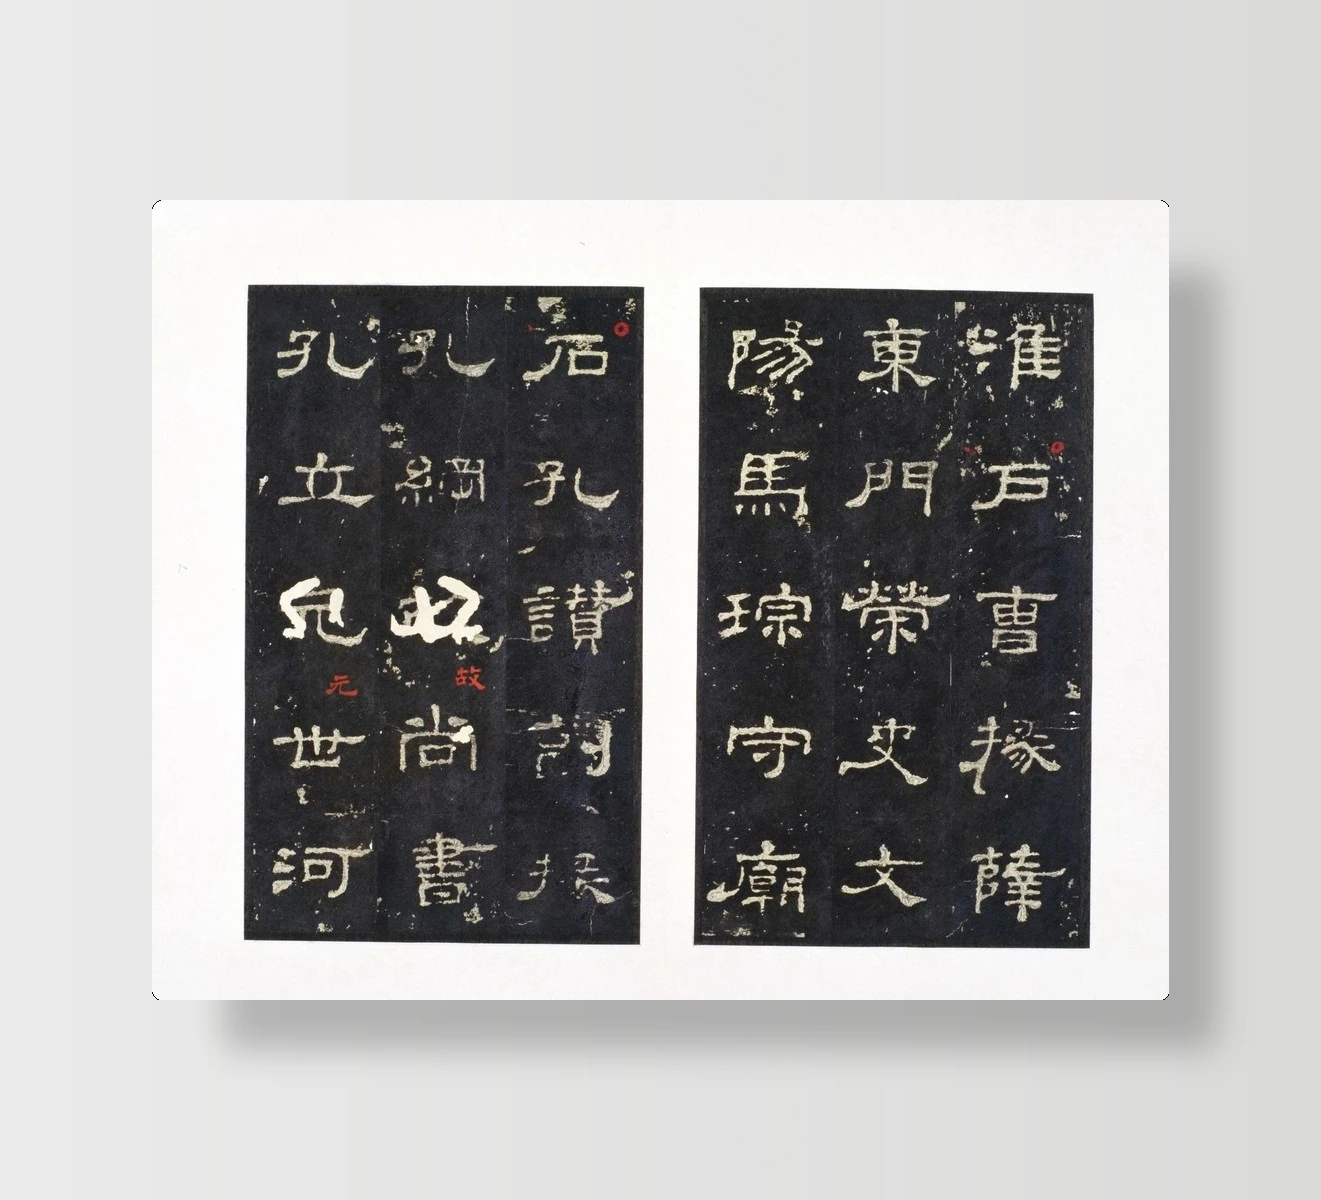 淮戶曹掾薛
東門榮史文
陽馬琮守廟
石孔讚副掾
孔綱故尚書
孔立元世河
故
元